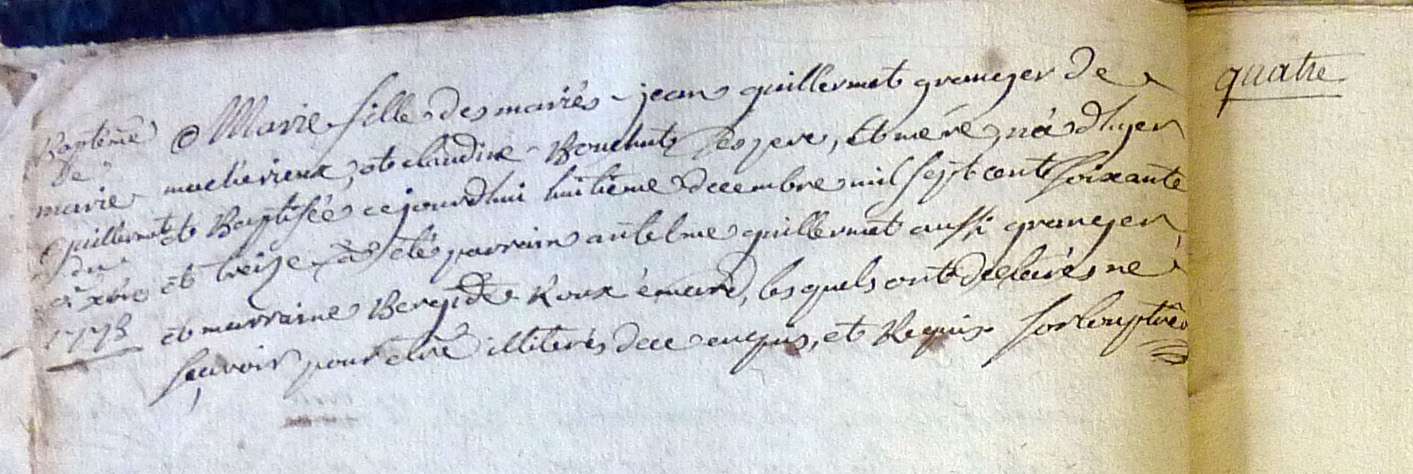 Baptême
de
marie
Guillermet
du
8e xbre
1773
Marie fille des mariés jean guillermet granger de
macherieux, et claudine Bouchut ses pere, et mére, née d'hyer
et Baptisée ce jourdhui huitième decembre mil sept cent soixante
et treize à été parrain antelme guillermet aussi granger,
et marraine Roux lesquels ont déclarés ne
sçavoir pour être illiterés de ce enquis, et Requis
quatre